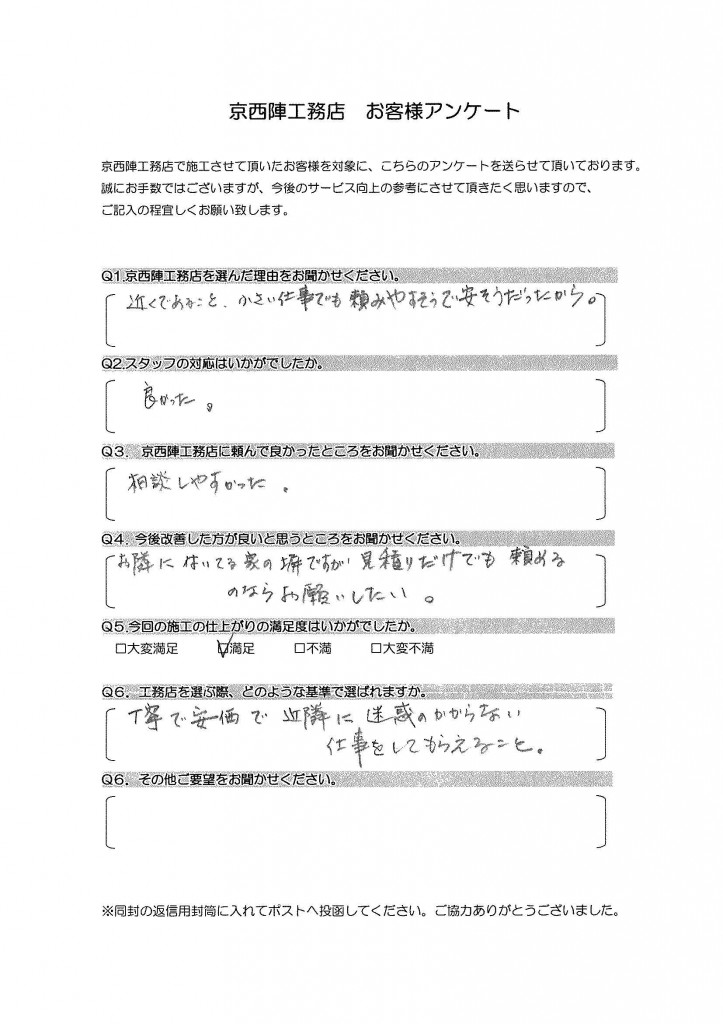 京西陣工務店 お客様アンケート
京西陣工務店で施工させて頂いたお客様を対象に、こちらのアンケートを送らせて頂いております。
誠にお手数ではございますが、今後のサービス向上の参考にさせて頂きたく思いますので、
ご記入の程宜しくお願い致します。
Q1.京西陣工務店を選んだ理由をお聞かせください。
近くであること、小さい仕事でも頼みやすそうで安そうだったから。
Q2.スタッフの対応はいかがでしたか。
良かった。
Q3. 京西陣工務店に頼んで良かったところをお聞かせください。
相談しやすかった。
Q4. 今後改善した方が良いと思うところをお聞かせください。
お隣に付いてる家の塀ですが見積りだけでも頼める
のならお願いしたい。
Q5.今回の施工の仕上がりの満足度はいかがでしたか。
□大変満足 ☑満足 □不満 □大変不満
Q6. 工務店を選ぶ際、どのような基準で選ばれますか。
丁寧で安価で近隣に迷惑のかからない
仕事をしてもらえること。
Q6. その他ご要望をお聞かせください。
※同封の返信用封筒に入れてポストへ投函してください。ご協力ありがとうございました。